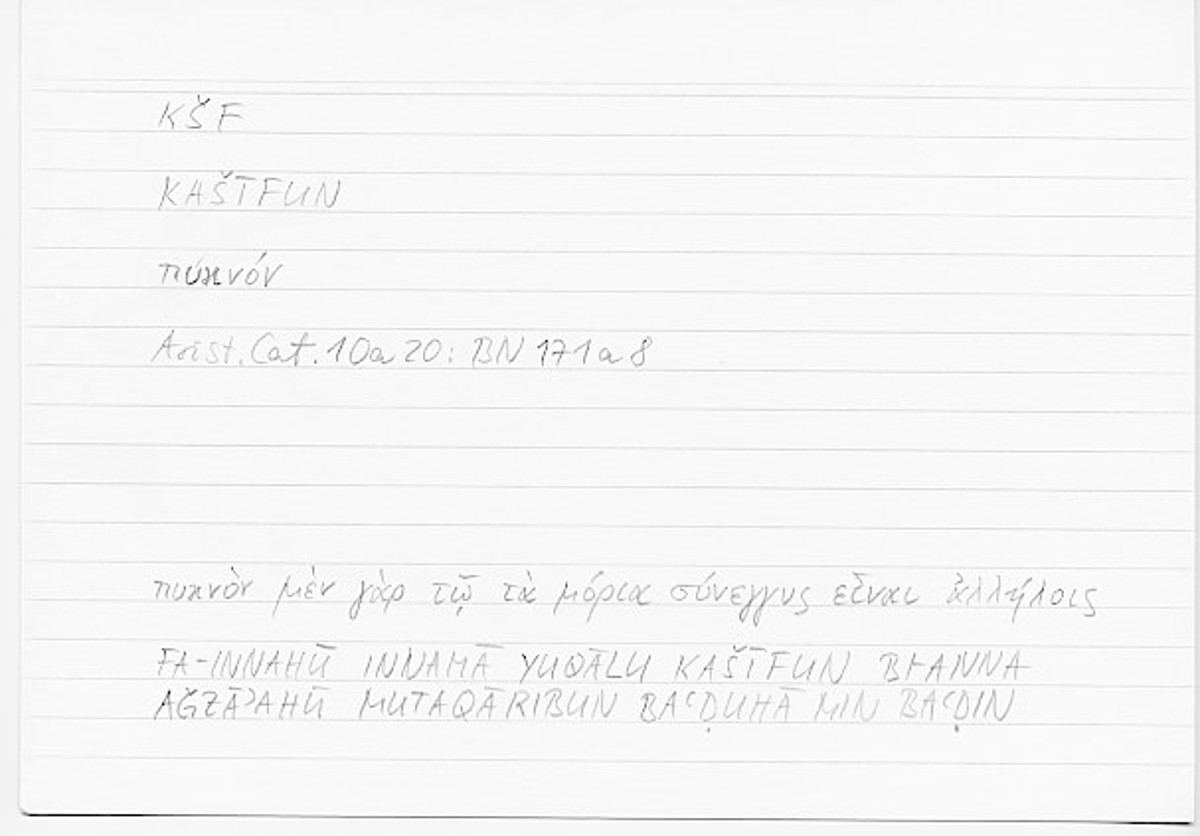 KŠF
KAŠĪFUN
πυκνόν
Arist. Cat. 10a20: BN 171a8
πυκνὸν μὲν γὰρ τῷ τὰ μόρια σύνεγγυς εἶναι ἀλλήλοις
FA-INNAHŪ INNAMĀ YUQĀLU KAŠĪFUN BI-ANNA
AǦZĀʾAHŪ MUTAQĀRIBUN BAʿḌUHĀ MIN BAʿḌIN